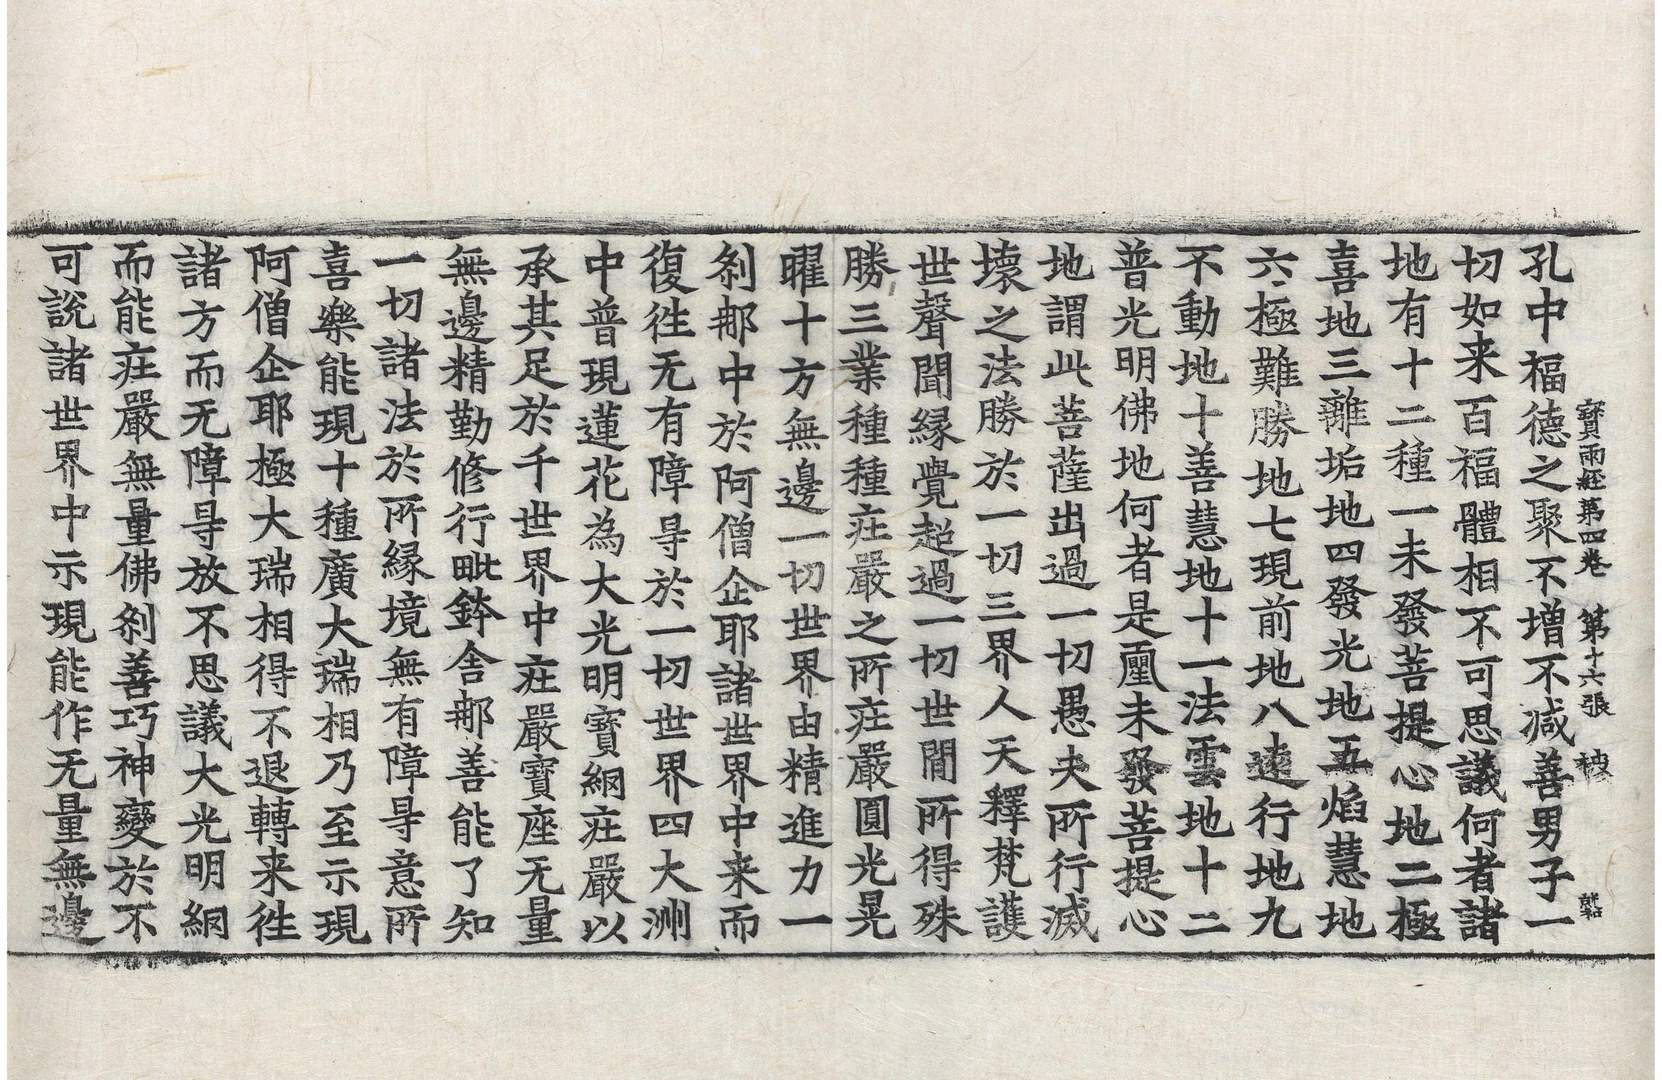 寳雨經第四卷 第十六張 被
孔中福德之聚不增不减善男子一
切如来百福體相不可思議何者諸
地有十二種一未發菩提心地二極
喜地三離垢地四發光地五焰慧地
六極難勝地七現前地八遠行地九
不動地十善慧地十一法雲地十二
普光明佛地何者是凰未發菩提心
地謂此菩薩出過一切愚夫所行滅
壞之法勝於一切三界人天釋梵護
世聲聞縁覺超過一切世間所得殊
勝三業種種莊嚴之所莊嚴圓光晃
曜十方無邊一切世界由精進力一
刹那中於阿僧企耶諸世界中来而
復徃无有障㝵於一切世界四大洲
中普現蓮花為大光明寳網莊嚴以
承其足於千世界中莊嚴寳座无量
無邊精勤修行毗鉢舍那善能了知
一切諸法於所縁境無有障㝵意所
喜樂能現十種廣大瑞相乃至示現
阿僧企耶極大瑞相得不退轉来徃
諸方而无障㝵放不思議大光明網
而能莊嚴無量佛刹善巧神變於不
可說諸世界中示現能作无量無邊